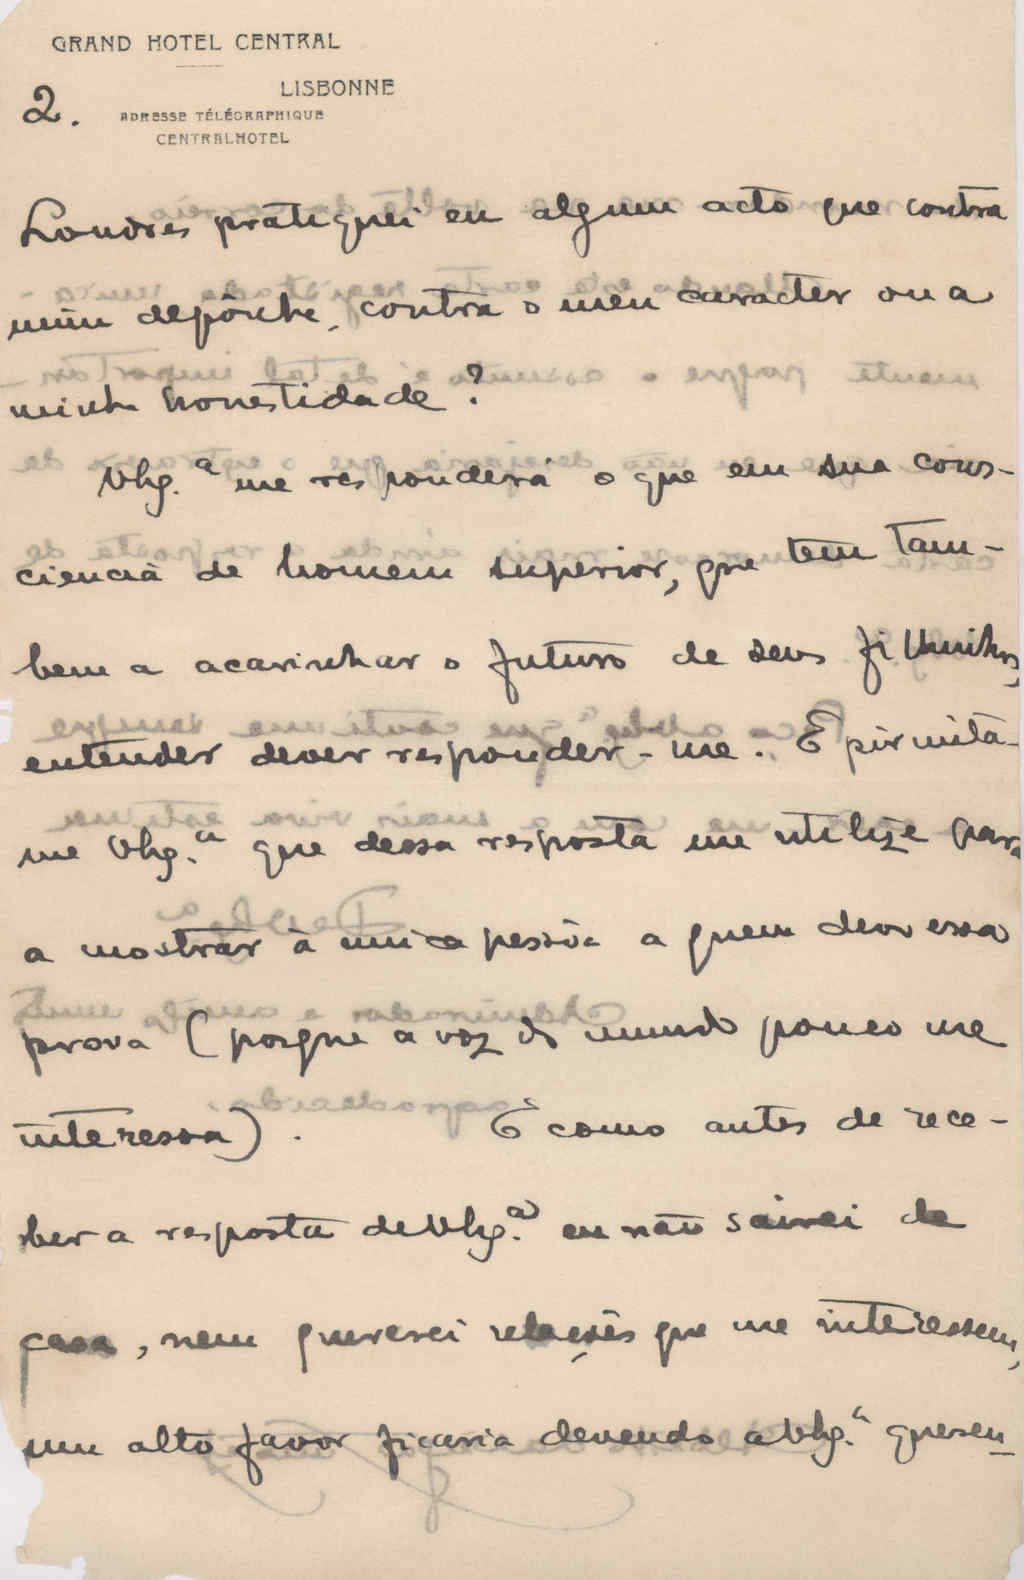 GRAND HOTEL CENTRAL
LISBONNE
2.
ADRESSE TÉLÉGRAPHIQUE
CENTRALHOTEL
Londres pratiquei eu algum acto que contra
mim depônha, contra o meu caracter ou a
minha honestidade?
Vhg.ª me responderá o que em sua cons-
ciencia de homem superior, que tem tam-
bem a acarinhar o futuro de seus filhinhos,
entender dever responder-me. E permita-
me Vhg.ª que dessa resposta me utilize para
a mostrar à unica pessôa a quem devo essa
prova (porque a voz do mundo pouco me
interessa). E como antes de rece-
ber a resposta de Vhg.ª eu não sairei de
casa, nem quererei relações que me interessem,
um alto favor ficaria devendo a Vhg.ª